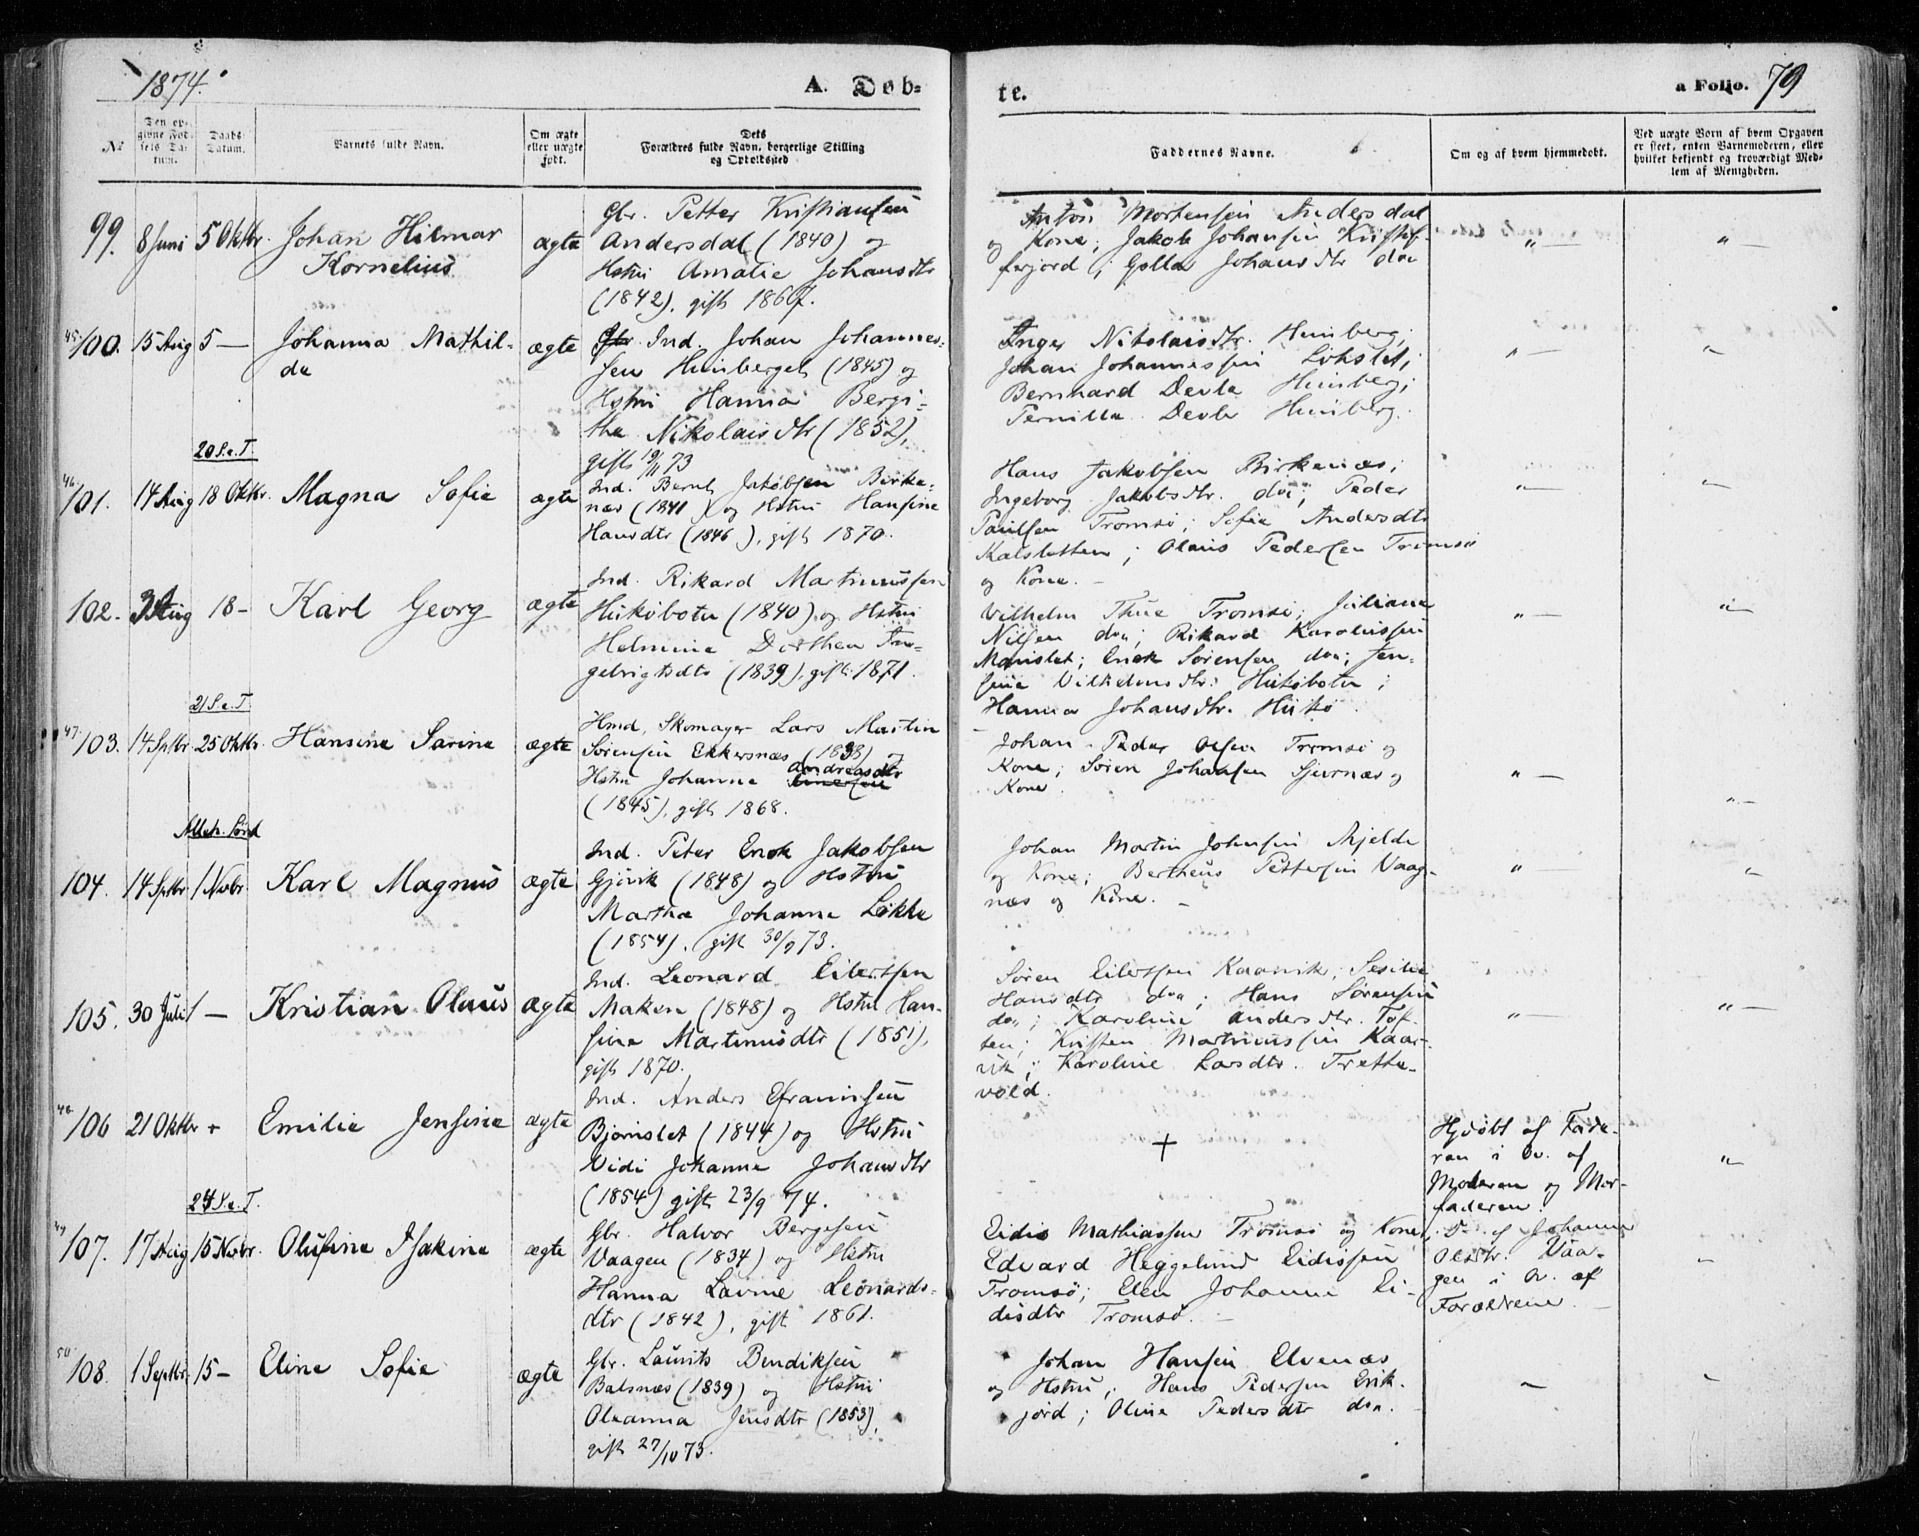 1874.
A. Døb-
te.
a Folio. 79
№
Den opgivne Fødsels Datum.
Daabs Datum.
Barnets fulde Navn.
Om ægte eller uægte født.
Dets Forældres fulde Navn, borgerlige Stilling og Opholdssted
Faddernes Navne.
Om og af hvem hjemmedøbt.
Ved uægte Børn af hvem Opgaven er skeet, enten Barnemoderen, eller hvilket bekjendt og troværdigt Medlem af Menigheden.
99. 8 Juni 5 Oktbr. Johan Hilmar
Kornelius
ægte
Gbr. Petter Kristiansen
Andersdal (1840) og
Hstru Amalie Johansdtr
(1842), gift 1867.
Anton Mortensen Andersdal
og Kone; Jakob Johansen Kristof-
ferjord; Golla Johansdtr do.
45. 100. 15 Aug 5 — Johanna Mathil-
da
ægte
Ind. Johan Johannes-
sen Hunberget (1845) og
Hstru Hanna Bergi-
the Nikolaisdtr (1852),
gift 19/11 73
Inger Nikolaisdtr. Hunberg;
Johan Johannessen Lökslet;
Bernhard Devle Hunberg;
Pernilla Devle Hunberg.
20 S. e. T.
46. 101. 14 Aug 18 Oktbr. Magna Sofie
ægte
Ind. Bernt Jakobsen Birke-
næs (1841) og Hstru Hansine
Hansdtr (1846), gift 1870.
Hans Jakobsen Birkenæs;
Ingeborg Jakobsdtr. do; Peder
Paulsen Tromsø; Sofie Andersdtr
Kalsletten; Olaus Pedersen Tromsø
og Kone.
102. Aug 18 - Karl Georg
ægte
Ind. Rikard Martinussen
Hukøbotn (1840) og Hstru
Helmine Dorthea In-
gebrigtsdtr (1839), gift 1871.
Vilhelm Thue Tromsø; Juliane
Nilsen do; Rikard Karoliussen
Manslet; Enok Sørensen do; Jen-
sine Vilhelmsdtr. Hukøbotn;
Hanna Johansdtr. Hukø.
21 S. e. T.
47. 103. 14 Septbr 25 Oktbr. Hansine Sarine
ægte
Hmd, Skomager Lars Martin
Sørensen Ekkersnæs (1833) og
Hstru Johanne Andreasdtr
(1845), gift 1868.
Johan Peder Olsen Tromsø og
Kone; Søren Johansen Sjursnæs og
Kone.
Alleh. Sønd
104. 14 Septbr 1 Novbr. Karl Magnus
ægte
Ind. Peter Enok Jakobsen
Gjøvik (1848) og Hstru
Martha Johanna Løkke
(1854), gift 30/9 73.
Johan Martin Johnsen Mjelde
og Kone; Bertheus Pettersen Vaag-
næs og Kone.
105. 30 Juli 1 — Kristian Olaus
ægte
Ind. Leonard Eilertsen
Maken (1848) og Hstru Han-
sine Martinusdtr (1851),
gift 1870.
Søren Eilertsen Kaarvik; Sesilie
Hansdtr do; Hans Sørensen
do; Karoline Andersdtr. Tof-
ten; Kristen Martinussen Kaar-
vik; Karoline Larsdtr. Trette-
vold.
48. 106 21 Oktbr + Emilie Jensine
ægte
Ind. Anders Efraimsen
Bjørnslet (1844) og Hstru
Vidi Johanne Johansdtr
(1854) gift 23/9 74.
+
Hjdøbt af Fade-
ren i Ov. af
Moderen og Mor-
faderen.
24 S. e. T.
49 107. 17 Aug 15 Novbr. Olufine Isakine
ægte
Gbr. Halvor Bergesen
Vaagen (1834) og Hstru
Hanna Lavine Leonards-
dtr (1842), gift 1861.
Eidis Mathiassen Tromsø og Kone;
Edvard Heggelund Eidissen
Tromsø; Elen Johanna Ei-
disdtr Tromsø.
D. af Johanna
Olsdtr. Vaa-
gen i Ov. af
Forældrene.
50 108. 1 Septbr. 15 - Eline Sofie
ægte
Gbr. Laurits Bendiksen
Balsnæs (1839) og Hstru
Oleanna Jensdtr (1853),
gift 27/10 73.
Johan Hansen Elvenæs
og Hstru; Hans Pedersen Erik-
jord; Oline Pedersdtr do.